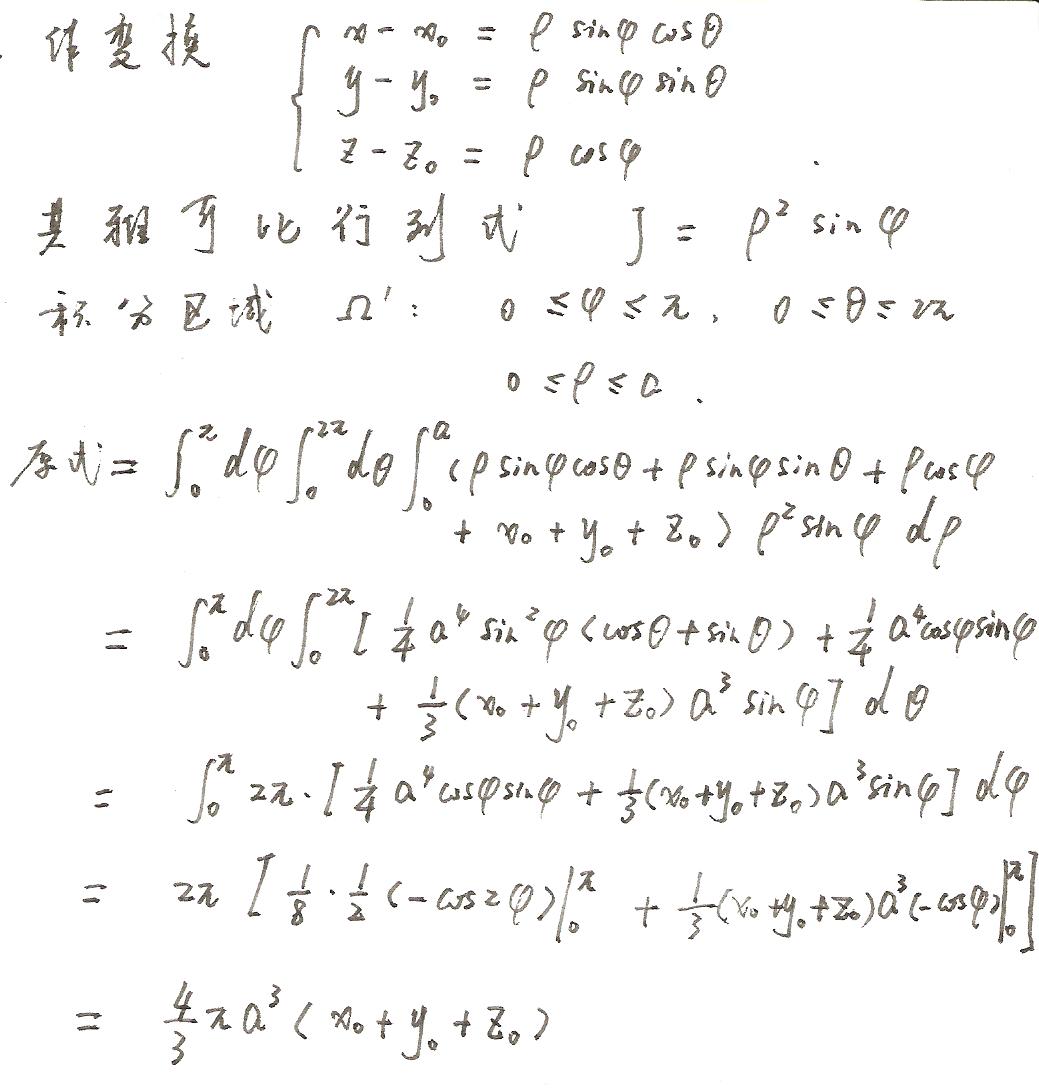 作变换 { x - x₀ = ρ sinφ cosθ
y - y₀ = ρ sinφ sinθ
z - z₀ = ρ cosφ
其雅可比行列式 J = ρ² sinφ
积分区域 Ω′: 0 ≤ φ ≤ π, 0 ≤ θ ≤ 2π
0 ≤ ρ ≤ a.
原式 = ∫₀^π dφ ∫₀^2π dθ ∫₀^a (ρ sinφ cosθ + ρ sinφ sinθ + ρ cosφ
+ x₀ + y₀ + z₀) ρ² sinφ dρ
= ∫₀^π dφ ∫₀^2π [ 1/4 a⁴ sin²φ (cosθ + sinθ) + 1/4 a⁴ cosφ sinφ
+ 1/3 (x₀ + y₀ + z₀) a³ sinφ ] dθ
= ∫₀^π 2π · [ 1/4 a⁴ cosφ sinφ + 1/3 (x₀ + y₀ + z₀) a³ sinφ ] dφ
= 2π [ 1/8 · 1/2 (-cos2φ) |₀^π + 1/3 (x₀ + y₀ + z₀) a³ (-cosφ) |₀^π ]
= 4/3 π a³ (x₀ + y₀ + z₀)